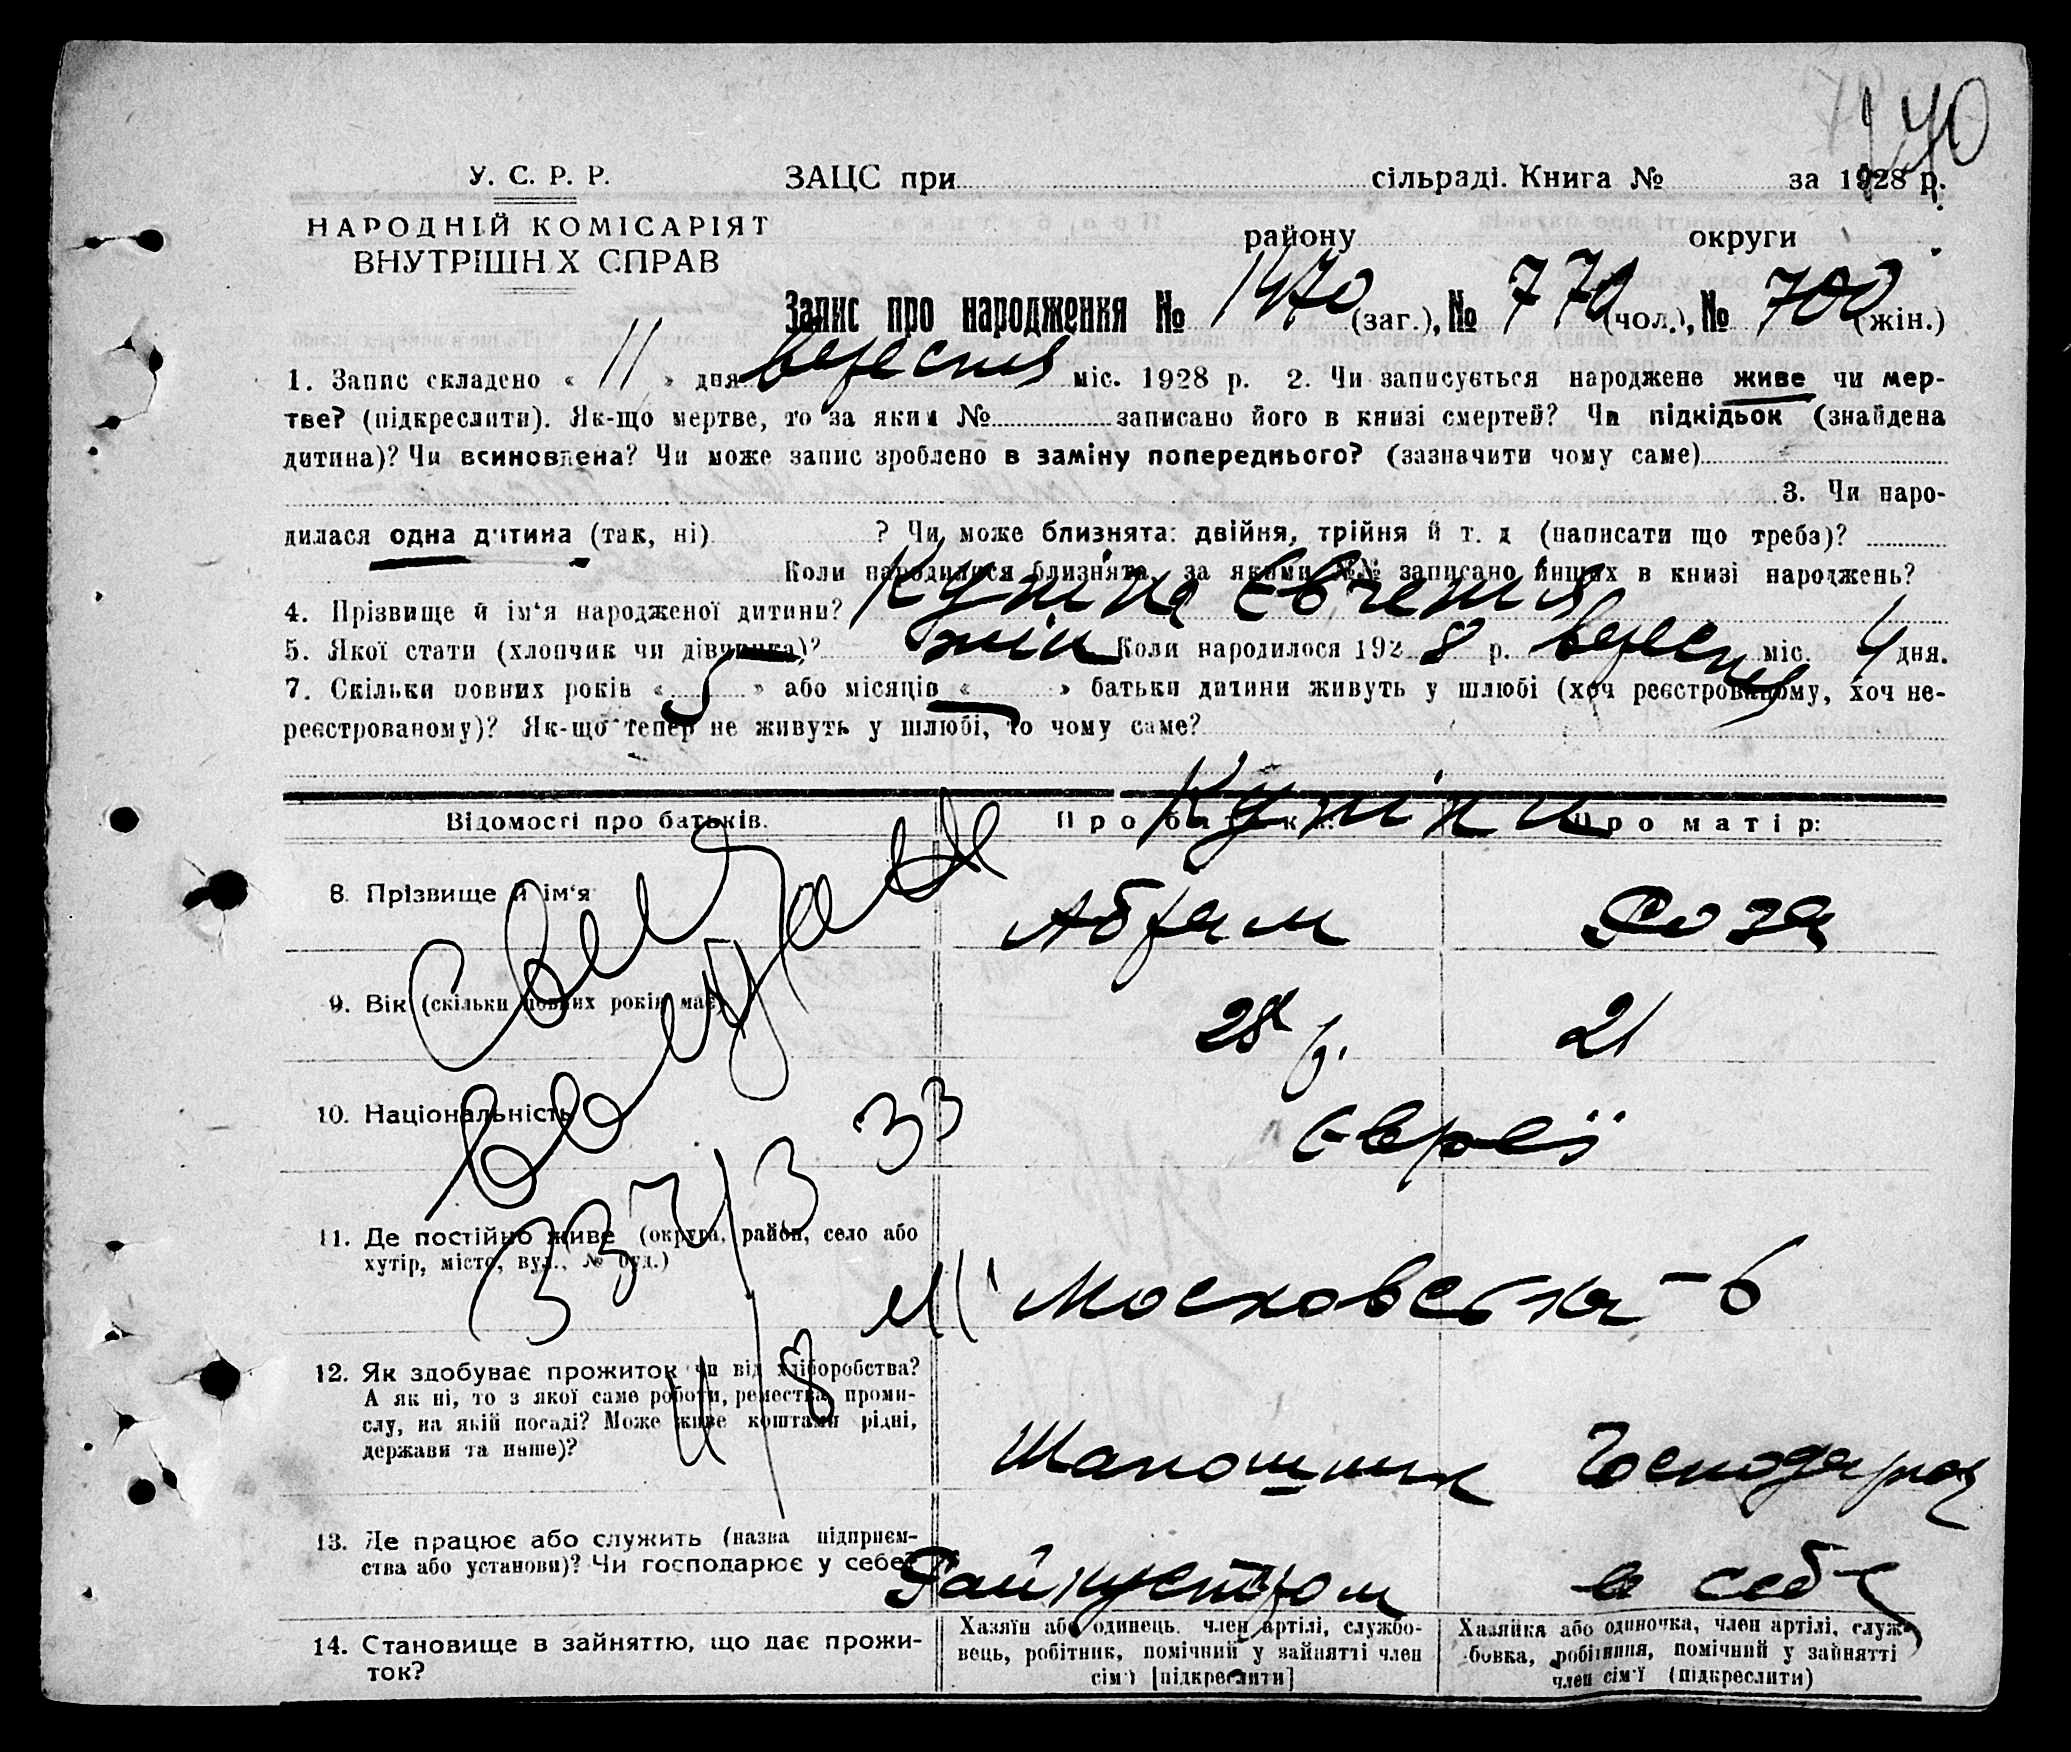 470
У. С. Р. Р.
НАРОДНІЙ КОМІСАРІЯТ
ВНУТРІШН Х СПРАВ
ЗАЦС при сільраді. Книга № за 1928 р.
району округи
Запис про народження № 1470 (заг.), № 770 (чол.), № 700 (жін.)
1. Запис складено « 11 » дня вересня міс. 1928 р. 2. Чи записується народжене живе чи мер-
тве? (підкреслити). Як-що мертве, то за яким № записано його в книзі смертей? Чи підкідьок (знайдена
дитина)? Чи всиновлена? Чи може запис зроблено в заміну попереднього? (зазначити чому саме)
3. Чи наро-
дилася одна дитина (так, ні) ? Чи може близнята: двійня, трійня й т. д (написати що треба)?
Коли народилися близнята, за якими №№ записано інших в книзі народжень?
4. Прізвище й ім‘я народженої дитини? Куніна Євгенія
5. Якої стати (хлопчик чи дівчинка)? жін Коли народилося 1928 р. вересня міс. 4 дня.
7. Скільки повних років « 5 » або місяців « — » батьки дитини живуть у шлюбі (хоч реєстрованому, хоч не-
реєстрованому)? Як-що тепер не живуть у шлюбі, то чому саме?
Відомості про батьків. Про батька: Про матір:
Куніни
8. Прізвище й ім‘я Абрам Роза
9. Вік (скільки повних років має) 28 р. 21
10. Національність Євреї
11. Де постійно живе (округа, район, село або
хутір, місто, вул., № буд.)
М Московська – 6
12. Як здобуває прожиток чи від хліборобства?
А як ні, то з якої саме роботи, ремества, проми-
слу, на якій посаді? Може живе коштами рідні,
держави та инше)?
Шапошник Господарка
13. Де працює або служить (назва підприєм-
ства або установи)? Чи господарює у себе?
в себе
14. Становище в зайняттю, що дає прожи-
ток?
Хазяїн або одинець, член артілі, службо-
вець, робітник, помічний у зайнятті член
сім‘ї [підкреслити]
Хазяйка або одиночка, член артілі, служ-
бовка, робітниця, помічний у зайнятті
член сім‘ї (підкреслити)